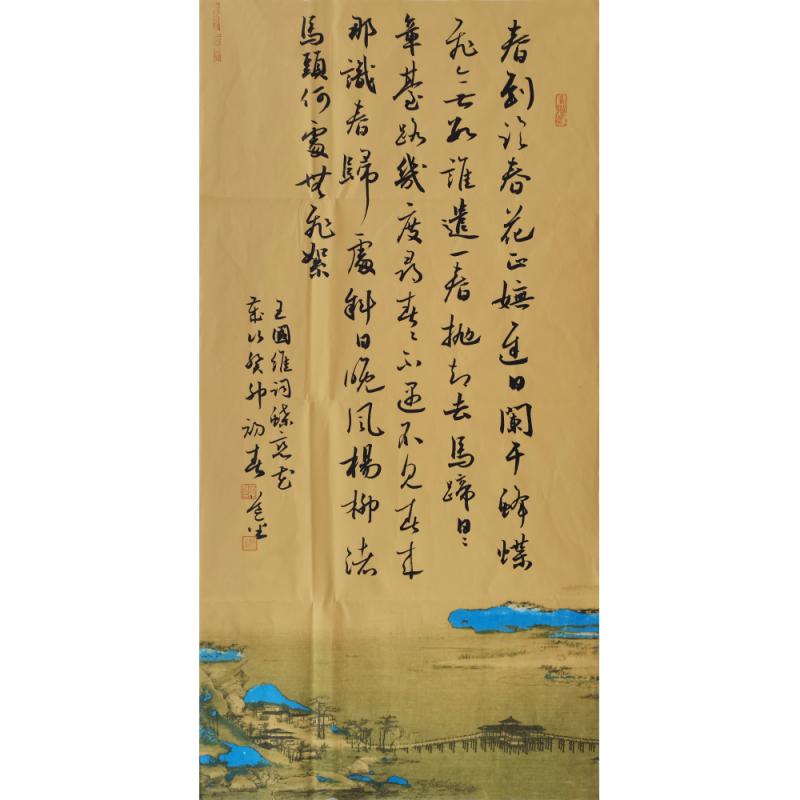 春到临春花正嫵迟日闌干蜂蝶
飛无数誰遣一春抛却去馬蹄日〻
章臺路幾度尋春〻不遇不見春来
那識春歸處斜日晚風楊柳渚
馬頭何處無飛絮
王國維詞蝶恋花
歲次癸卯初春